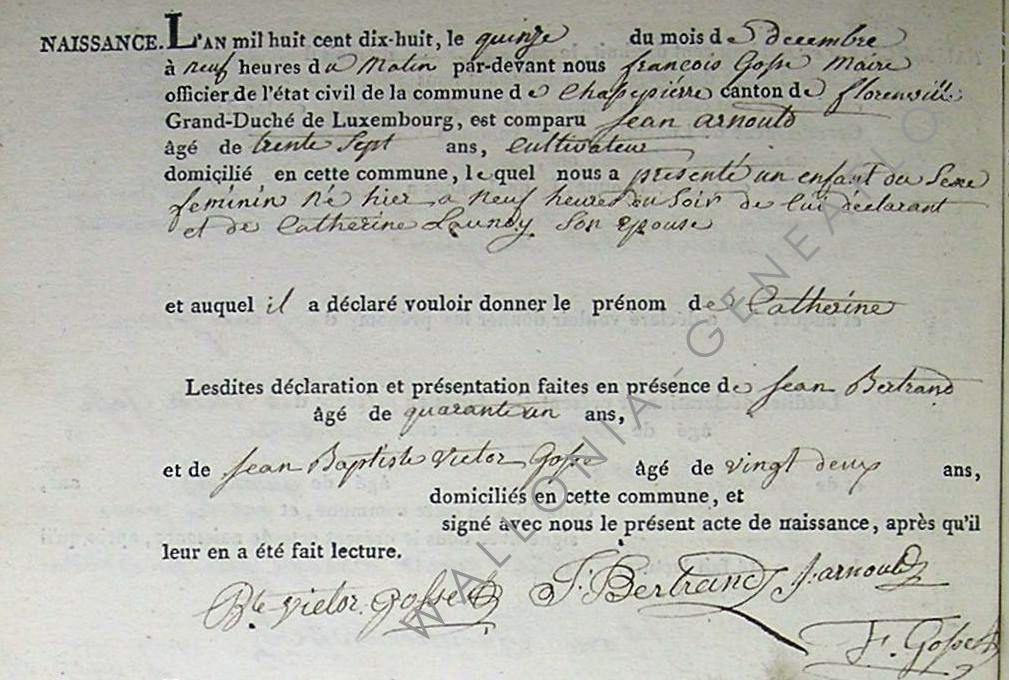 NAISSANCE. L'AN mil huit cent dix-huit, le quinze du mois de Decembre
à neuf heures du Matin par-devant nous françois Gosse Maire
officier de l'état civil de la commune de Chassepierre canton de florenville
Grand-Duché de Luxembourg, est comparu Jean arnould
âgé de trente Sept ans, Cultivateur
domicilié en cette commune, lequel nous a présenté un enfant du Sexe
feminin né hier a neuf heures du Soir de lui déclarant
et de Catherine Launoy Son epouse
et auquel il a déclaré vouloir donner le prénom de Catherine
Lesdites déclaration et présentation faites en présence de Jean Bertrand
âgé de quarante un ans,
et de Jean Baptiste Victor Gosse âgé de vingt deux ans,
domiciliés en cette commune, et
signé avec nous le présent acte de naissance, après qu'il
leur en a été fait lecture.
Bte Victor Gosse J. Bertrand J. arnould
F. Gosse
WALLONIA - GENEALO